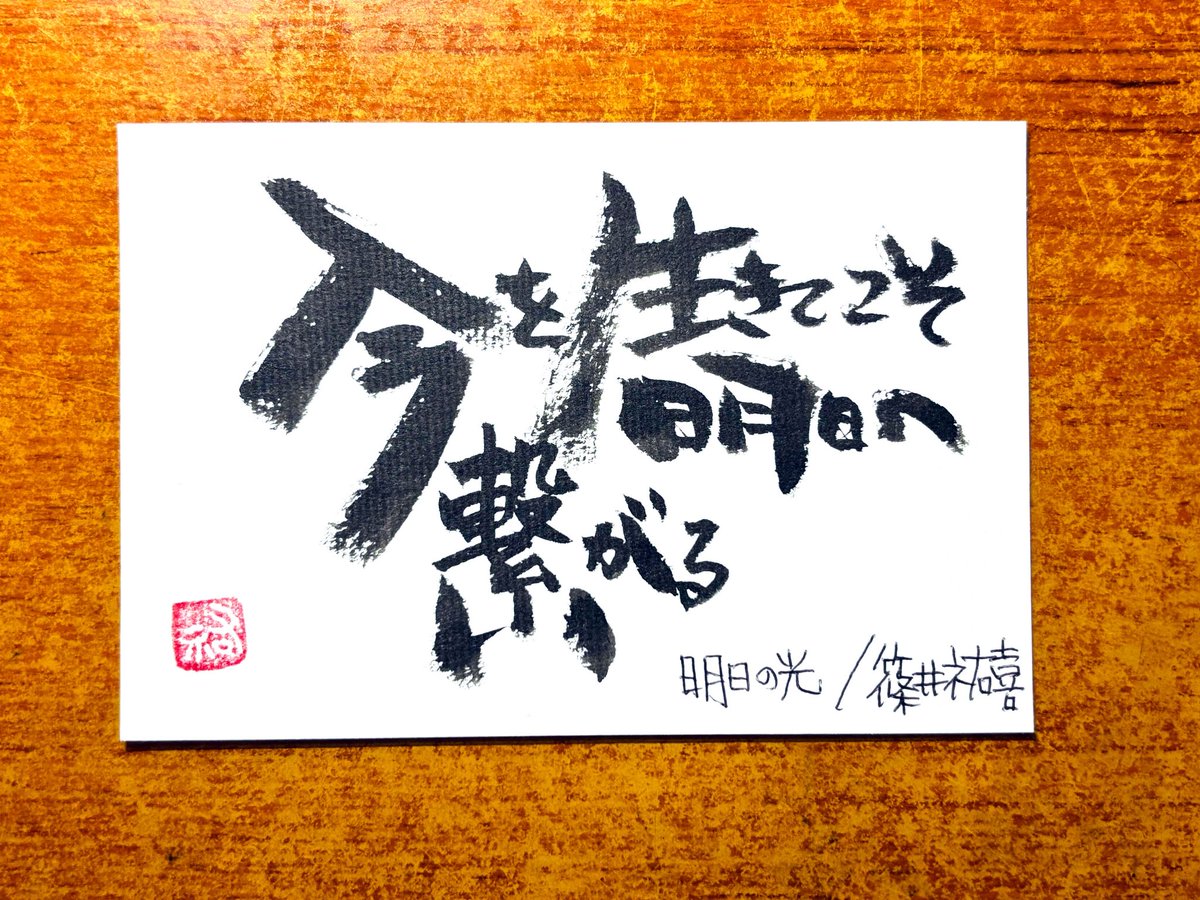 今を生きてこそ
明日へ
繋がる
明日の光／篠井祐喜